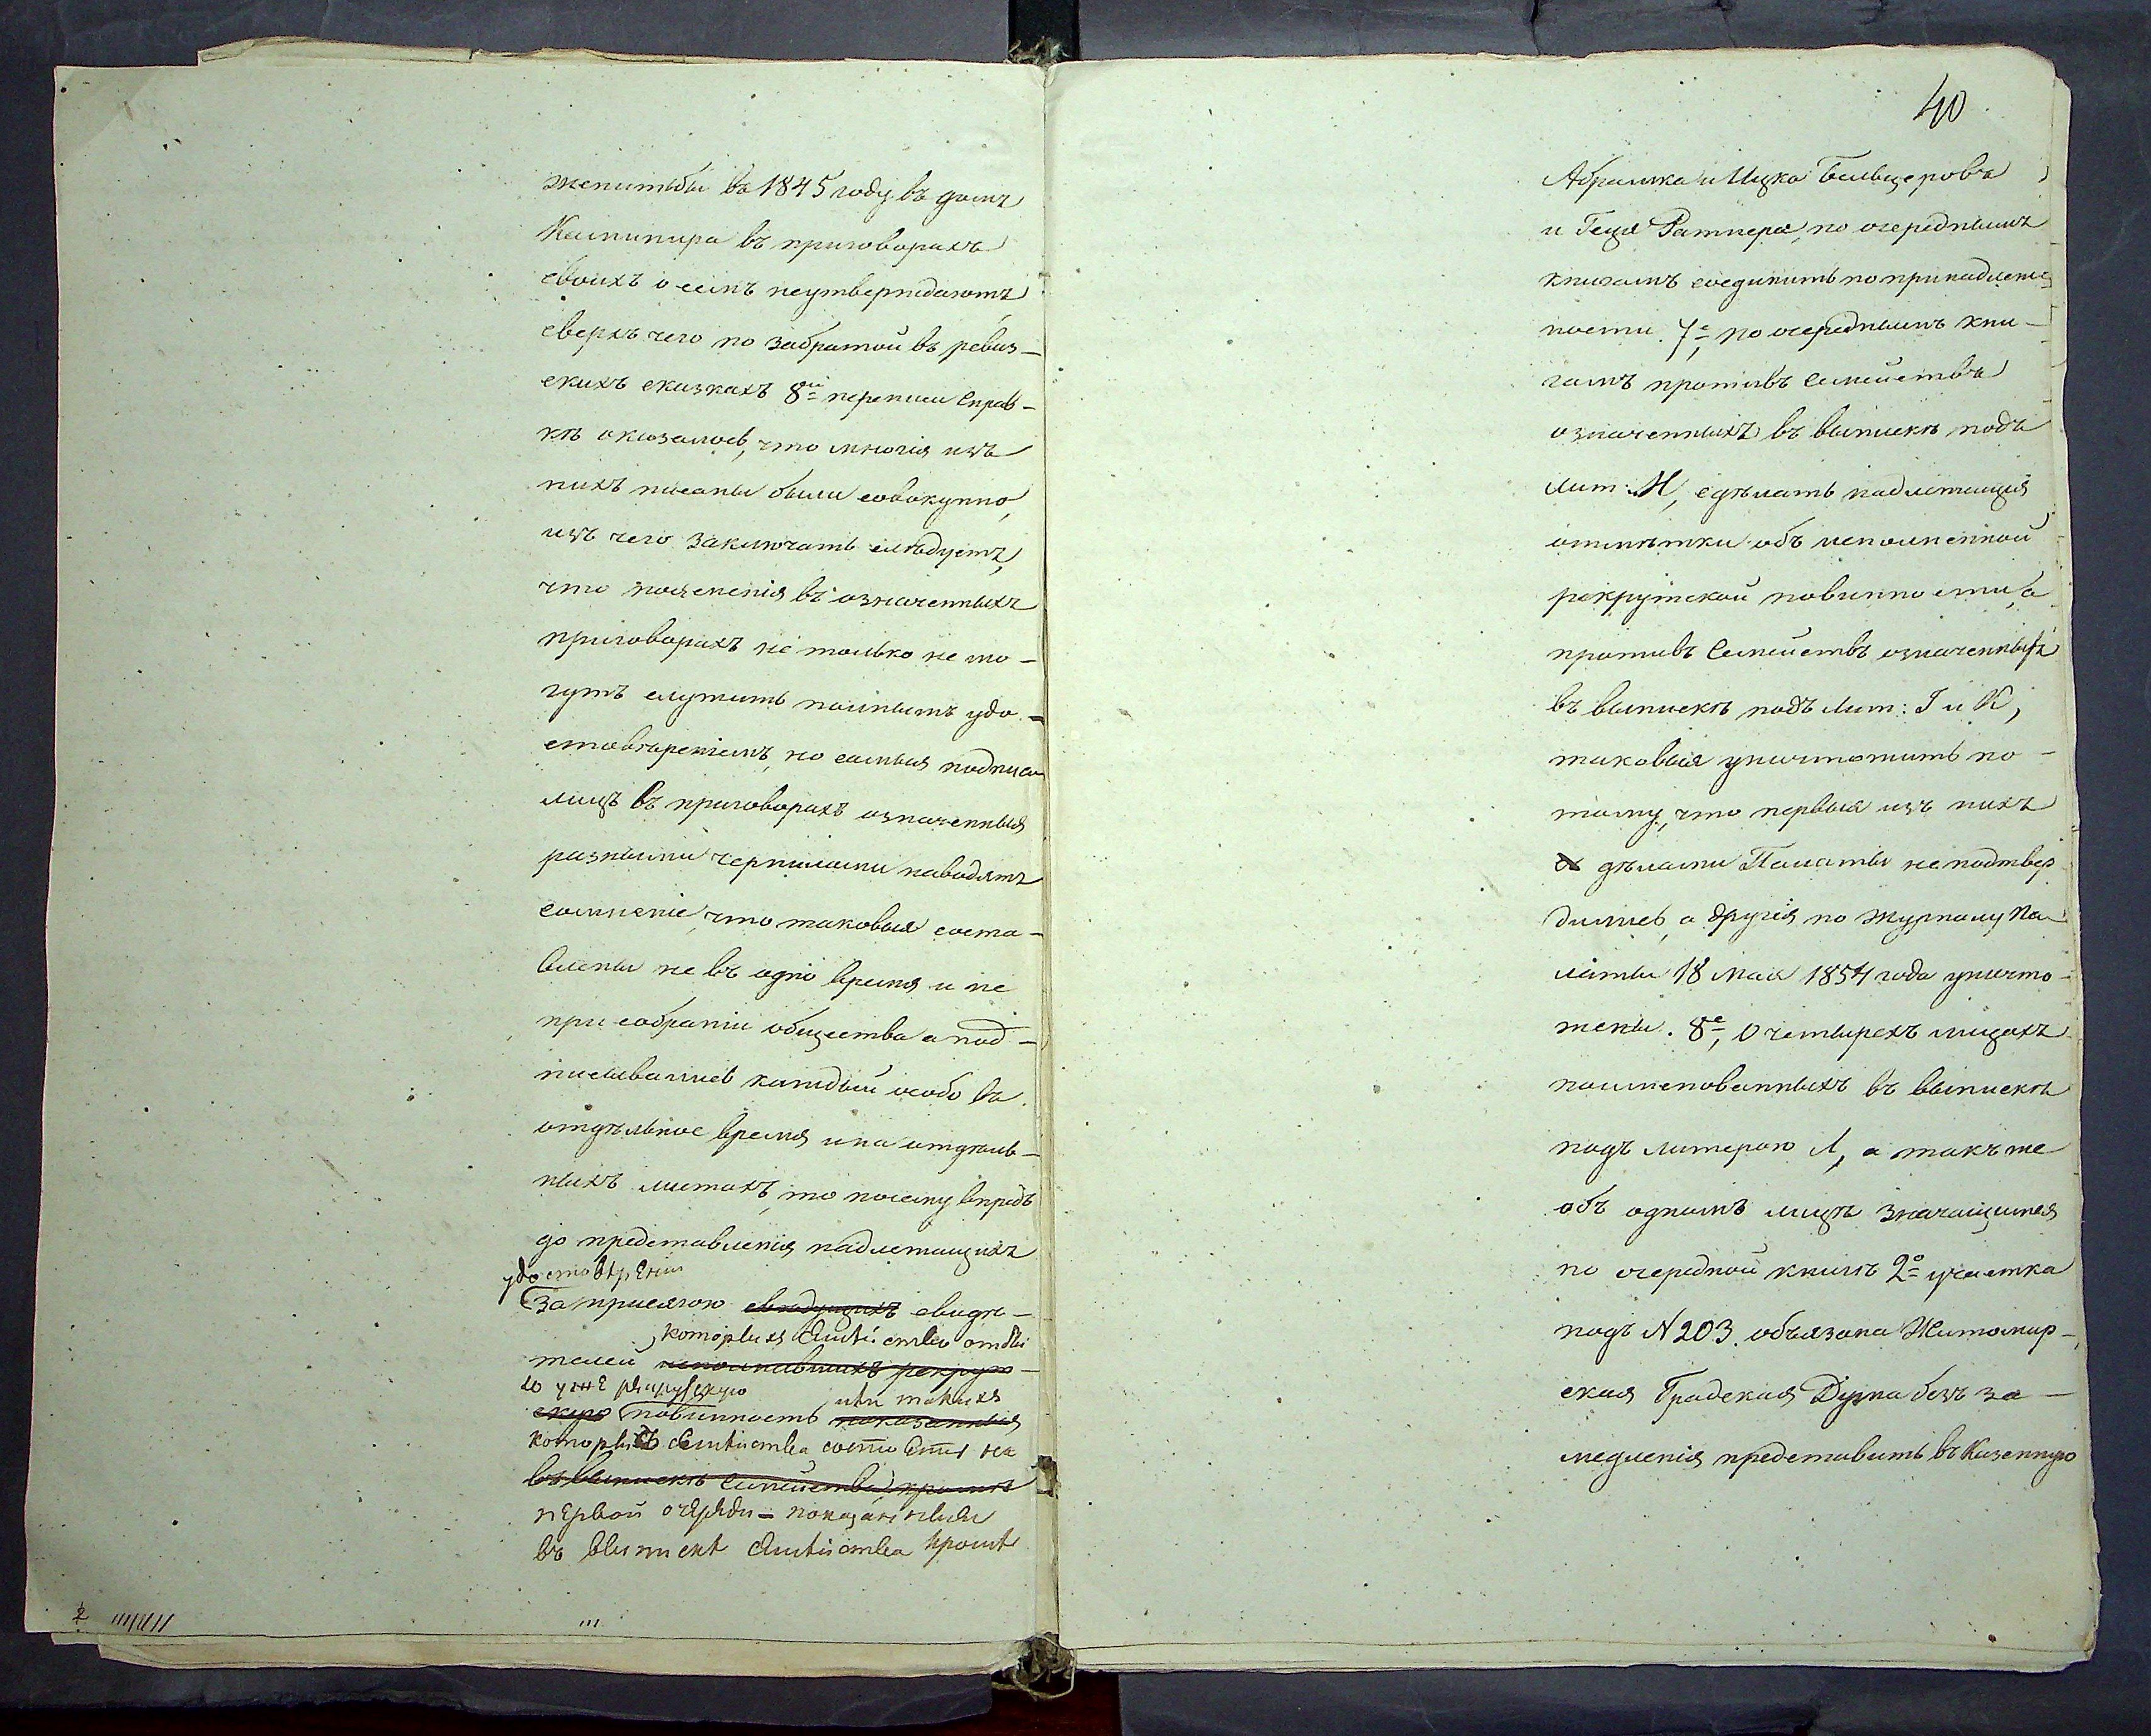 женитьбы въ 1845 году въ домъ
въ приговорахъ
своихъ о семъ неутверждаютъ
сверхъ чего по забратой въ ревиз-
скихъ сказкахъ 8й переписи справ-
кѣ оказалось, что многія изъ
нихъ писаны были совокупно,
изъ чего заключать слѣдуетъ,
что поясненія въ означенныхъ
приговорахъ не только не мо-
гутъ служить полнымъ удо-
стовѣреніемъ, но самыя подписи
лицъ въ приговорахъ означенныя
разными чернилами наводятъ
сомненіе, что таковыя соста-
влены не въ одно время и не
при собраніи общества а под-
писывались каждый особо въ
отдѣльное время и на отдѣль-
ныхъ листахъ, то посему впредь
до представленія надлежащихъ
удостовѣреній
за присягою сведущихъ свидѣ-
которыхъ Семѣйства отбы
телей исполнявшихъ рекрут-
ло уже рекрутскую или такихъ
скую повинность показанныя
которыхъ семѣйства состоятъ на
въ выпискѣ Семѣйства, кромѣ
первой очереди - показанныя
въ выпискѣ Семѣйства кромѣ
40
Абрамка и Ицка Бельцеровъ
и Геця Ратнера, по очереднымъ
книгамъ соединить по принадлеж-
ности. 7е, по очереднымъ кни-
гамъ противъ Семействъ
означенныхъ въ выпискѣ подъ
Лит: И, сдѣлать надлежащія
отмѣтки объ исполненной
рекрутской повинности, а
противъ Семействъ означенныхъ
въ выпискѣ подъ Лит: І и К,
таковыя уничтожить по-
тому, что первыя изъ нихъ
дѣлами Палаты не подтвер
дились, а другія по журналу Па-
латы 18 Мая 1854 года уничто-
жены. 8е, О четырехъ лицахъ
поименованныхъ въ выпискѣ
подъ литерою Л, а такъ же
объ одномъ лицѣ значащимся
по очередной книгѣ 2о участка
подъ N 203. обязана Житомир-
ская Градская Дума безъ за-
медленія представить въ Казенную